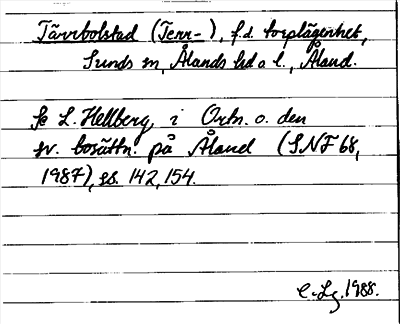 Tärrbolstad (Terr-), f.d. torplägenhet,
Sunds sn, Ålands hd o l., Åland.
Se L. Hellberg i Ortn. o. den
sv. bosättn. på Åland (SNF 68,
1987), ss. 142, 154.
C-Lg. 1988.